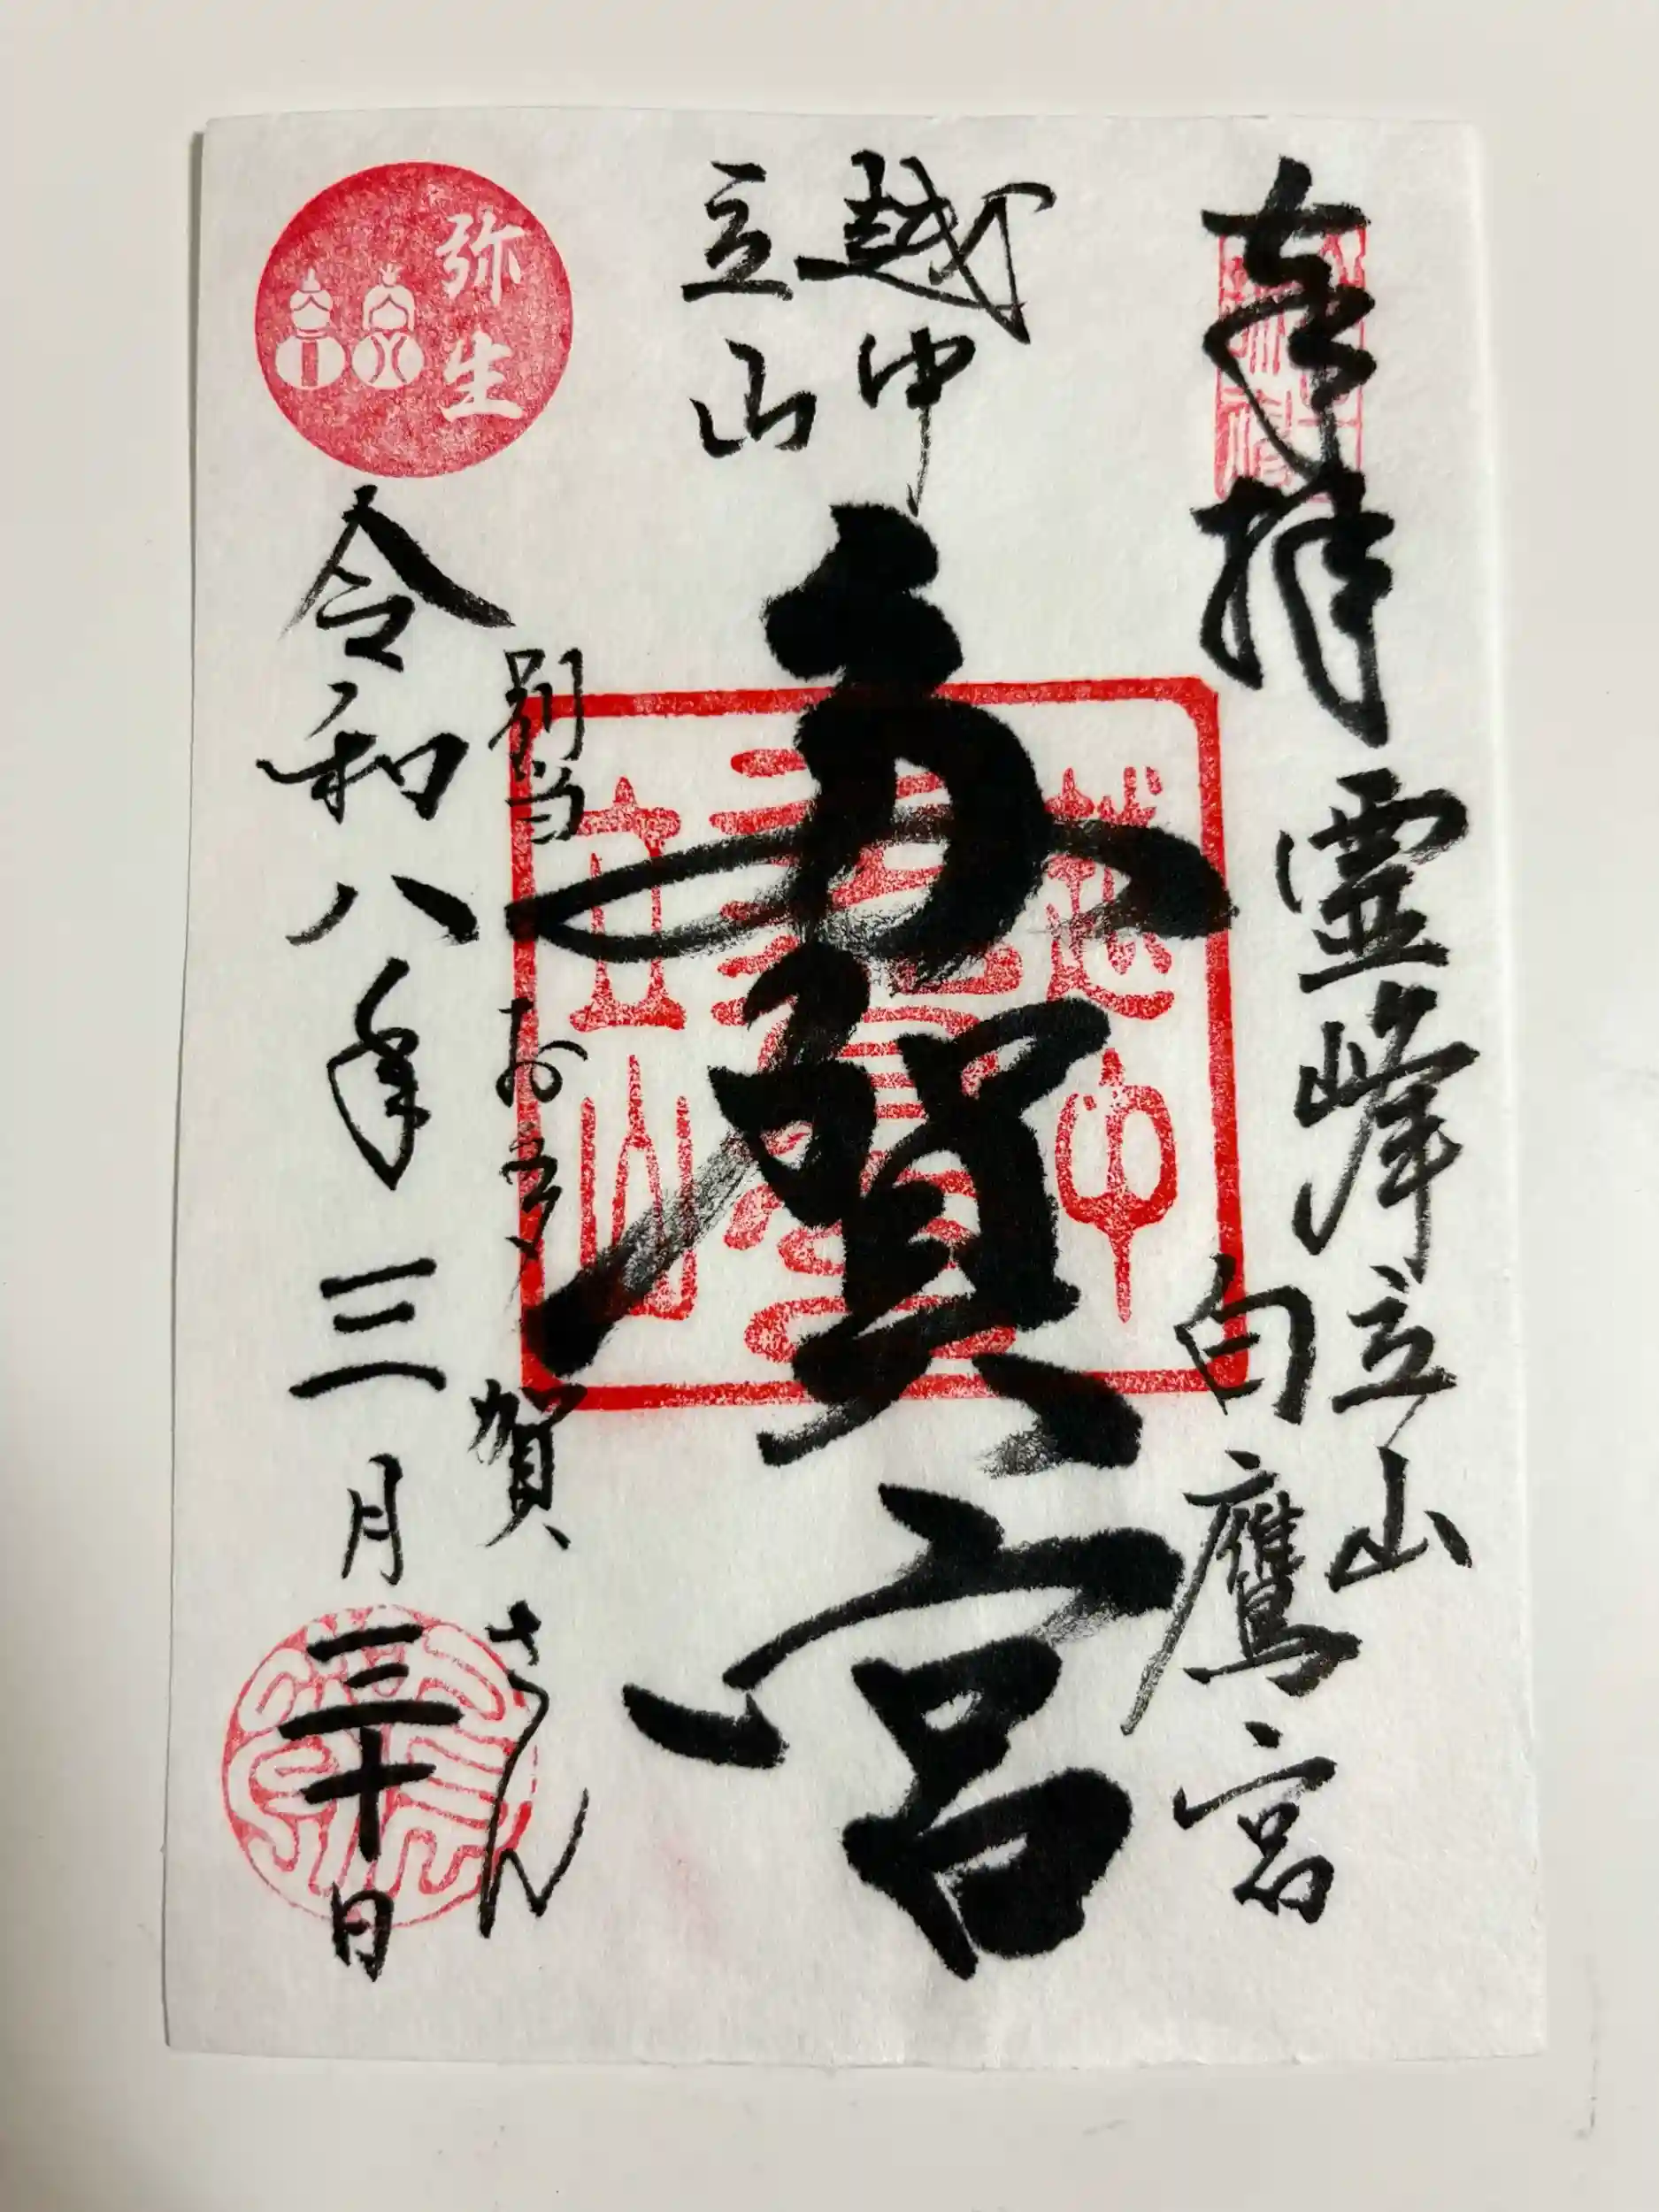 奉拝
霊峰立山
白鷹宮
越中
立山
多賀宮
越中
立山
別当
お多賀さん
弥生
令和八年三月三十日